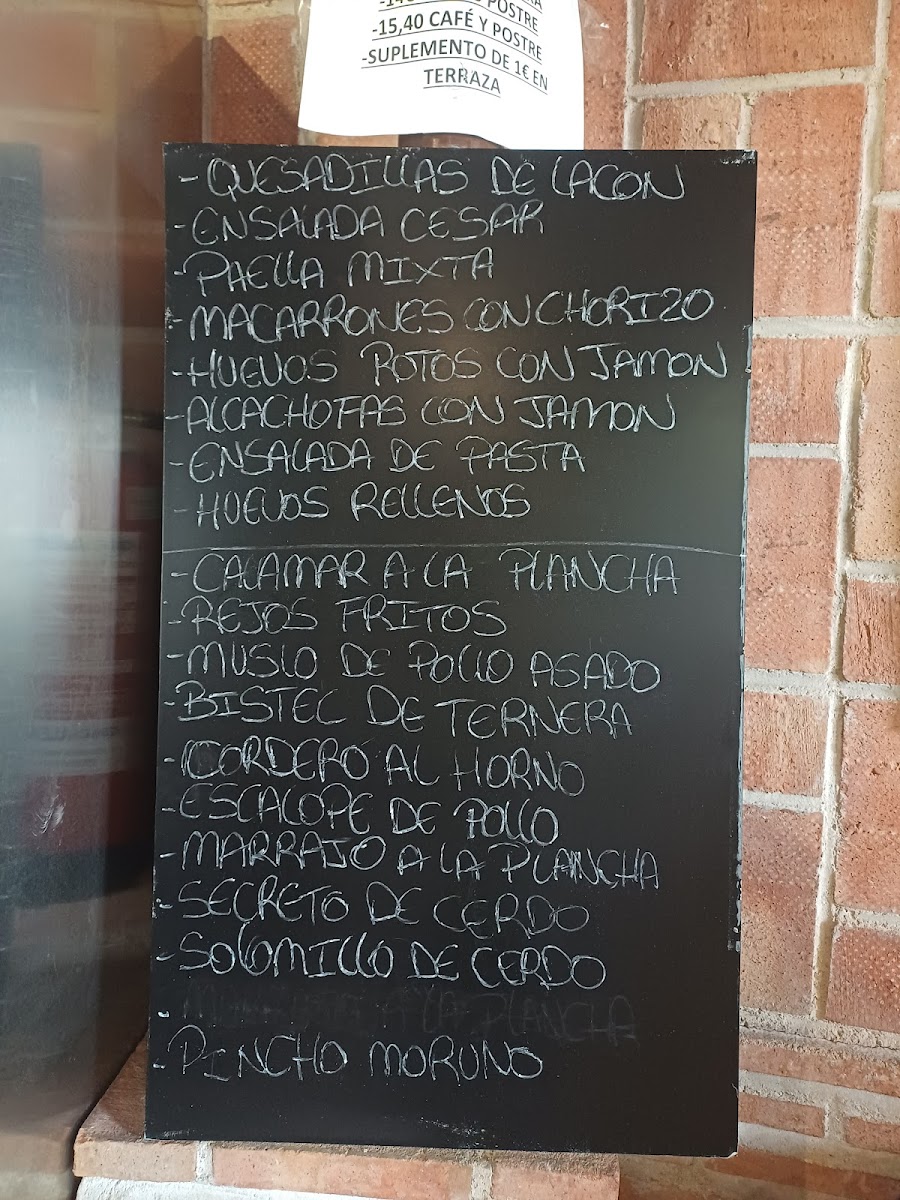 POSTRE
-15,40 CAFÉ Y POSTRE
-SUPLEMENTO DE 1€ EN
TERRAZA
- QUESADILLAS DE LACON
- ENSALADA CESAR
- PAELLA MIXTA
- MACARRONES CON CHORIZO
- HUEVOS ROTOS CON JAMON
- ALCACHOFAS CON JAMON
- ENSALADA DE PASTA
- HUEVOS RELLENOS
- CALAMAR A LA PLANCHA
- REJOS FRITOS
- MUSLO DE POLLO ASADO
- BISTEC DE TERNERA
- CORDERO AL HORNO
- ESCALOPE DE POLLO
- MARRAJO A LA PLANCHA
- SECRETO DE CERDO
- SOLOMILLO DE CERDO
- A LA PLANCHA
- PINCHO MORUNO